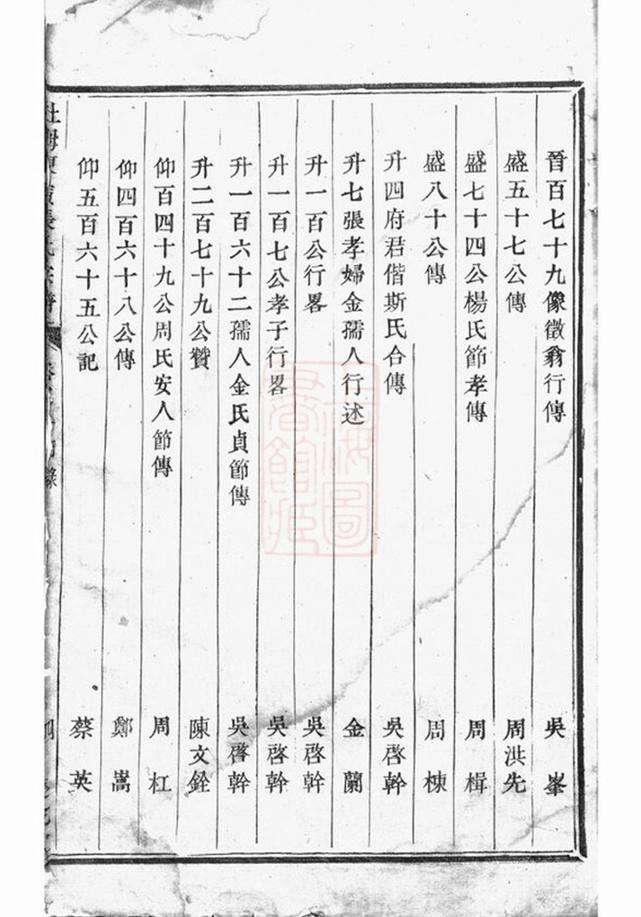 晉百七十九像徵翁行傳 吳峯
盛五十七公傳 周洪先
盛七十四公楊氏節孝傳 周楫
盛八十公傳 周棟
升四府君偕斯氏合傳 吳啓幹
升七張孝婦金孺人行述 金蘭
升一百公行畧 吳啓幹
升一百七公孝子行畧 吳啓幹
升一百六十二孺人金氏貞節傳 吳啓幹
升二百七十九公贊 陳文銓
仰百四十九公周氏安人節傳 周杠
仰四百六十八公傳 鄭嵩
仰五百六十五公記 蔡英
上海圖書館藏